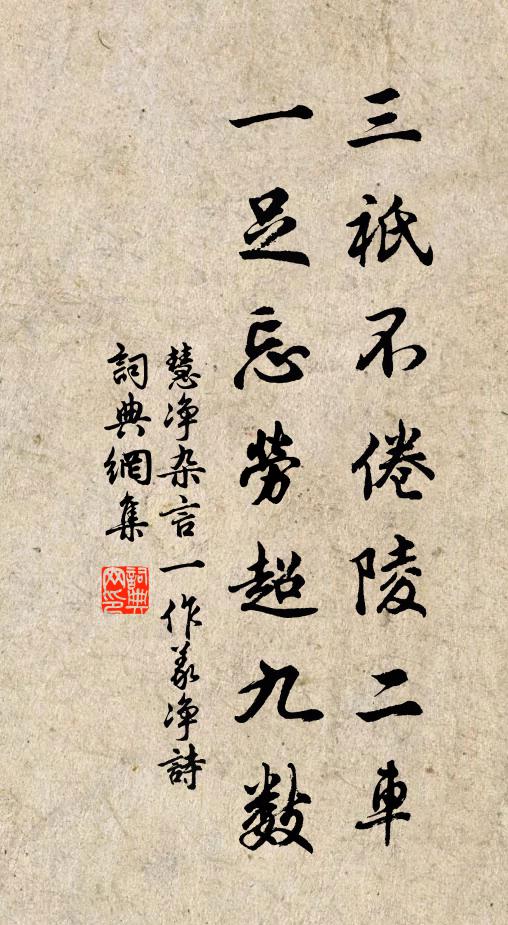 三祇不倦陵二車
一足忘勞超九數
慧净杂言一作義净詩
詞典網集
詞典
网印